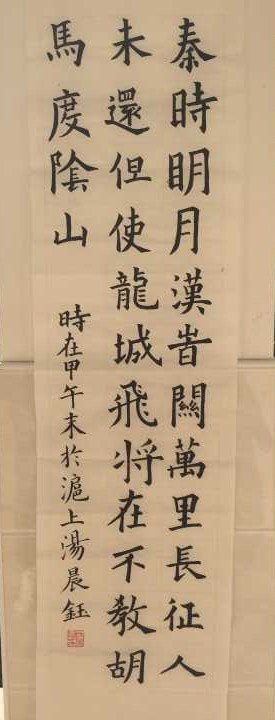 秦時眀月漢旹關萬里長征人
未還但使龍城飛将在不教胡
馬度陰山
時在甲午末於滬上湯晨鈺